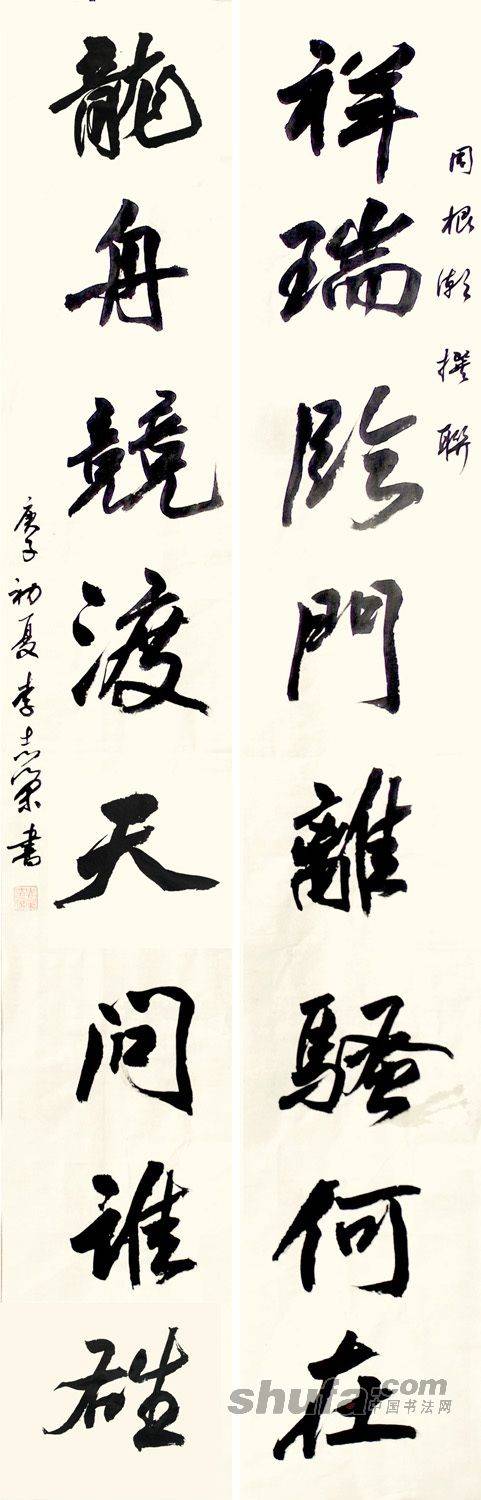 周根潮撰聯
祥瑞臨門離騷何在
龍舟競渡天問誰
庚子初夏李志書
shufa.com
中国书法网